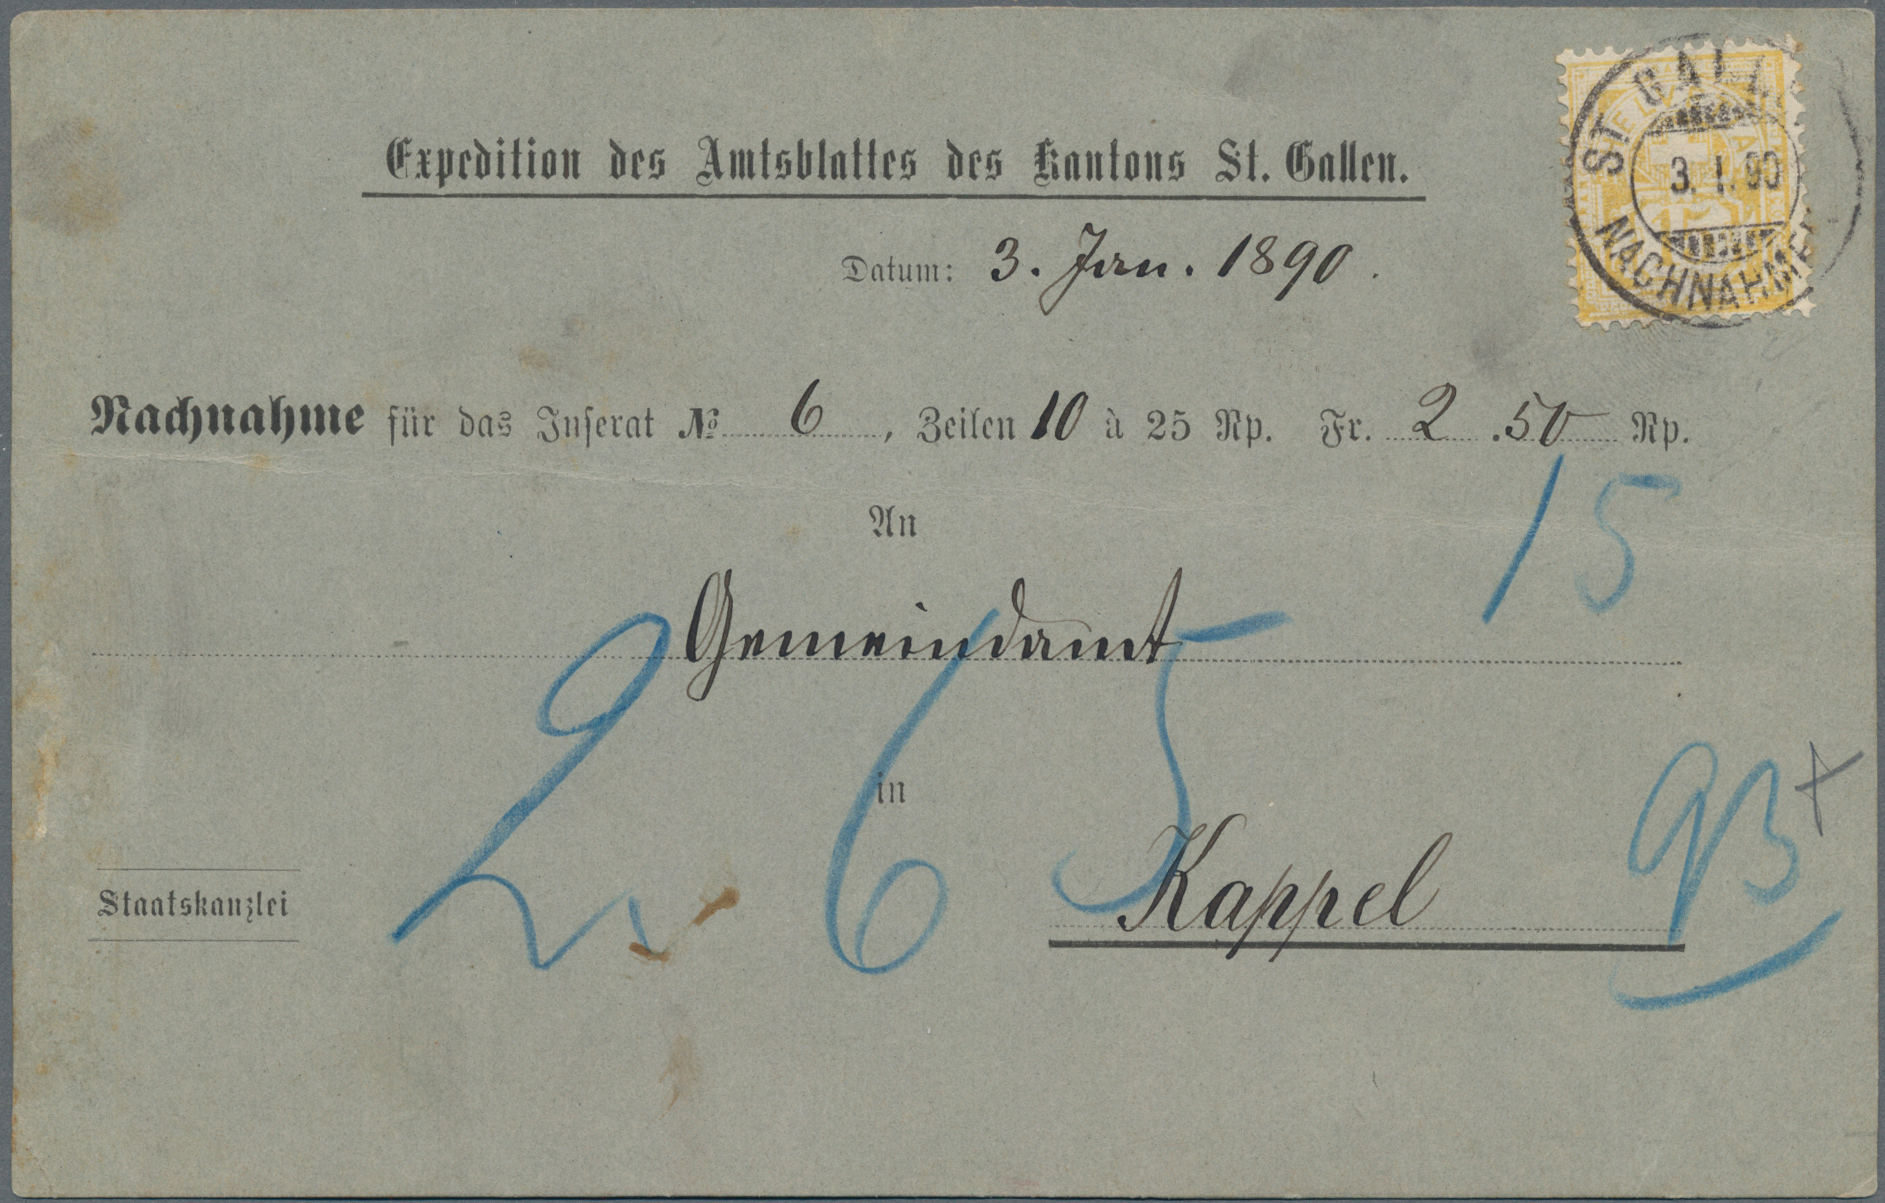 Expedition des Amtsblattes des Kantons St. Gallen.
ST. GALL
3. I. 90
NACHNAHMEN
Datum: 3. Jan. 1890.
Nachnahme für das Inserat № 6, Zeilen 10 à 25 Rp. Fr. 2.50 Rp.
15
An
Gemeindamt
2. 65
in
Kappel
Staatskanzlei